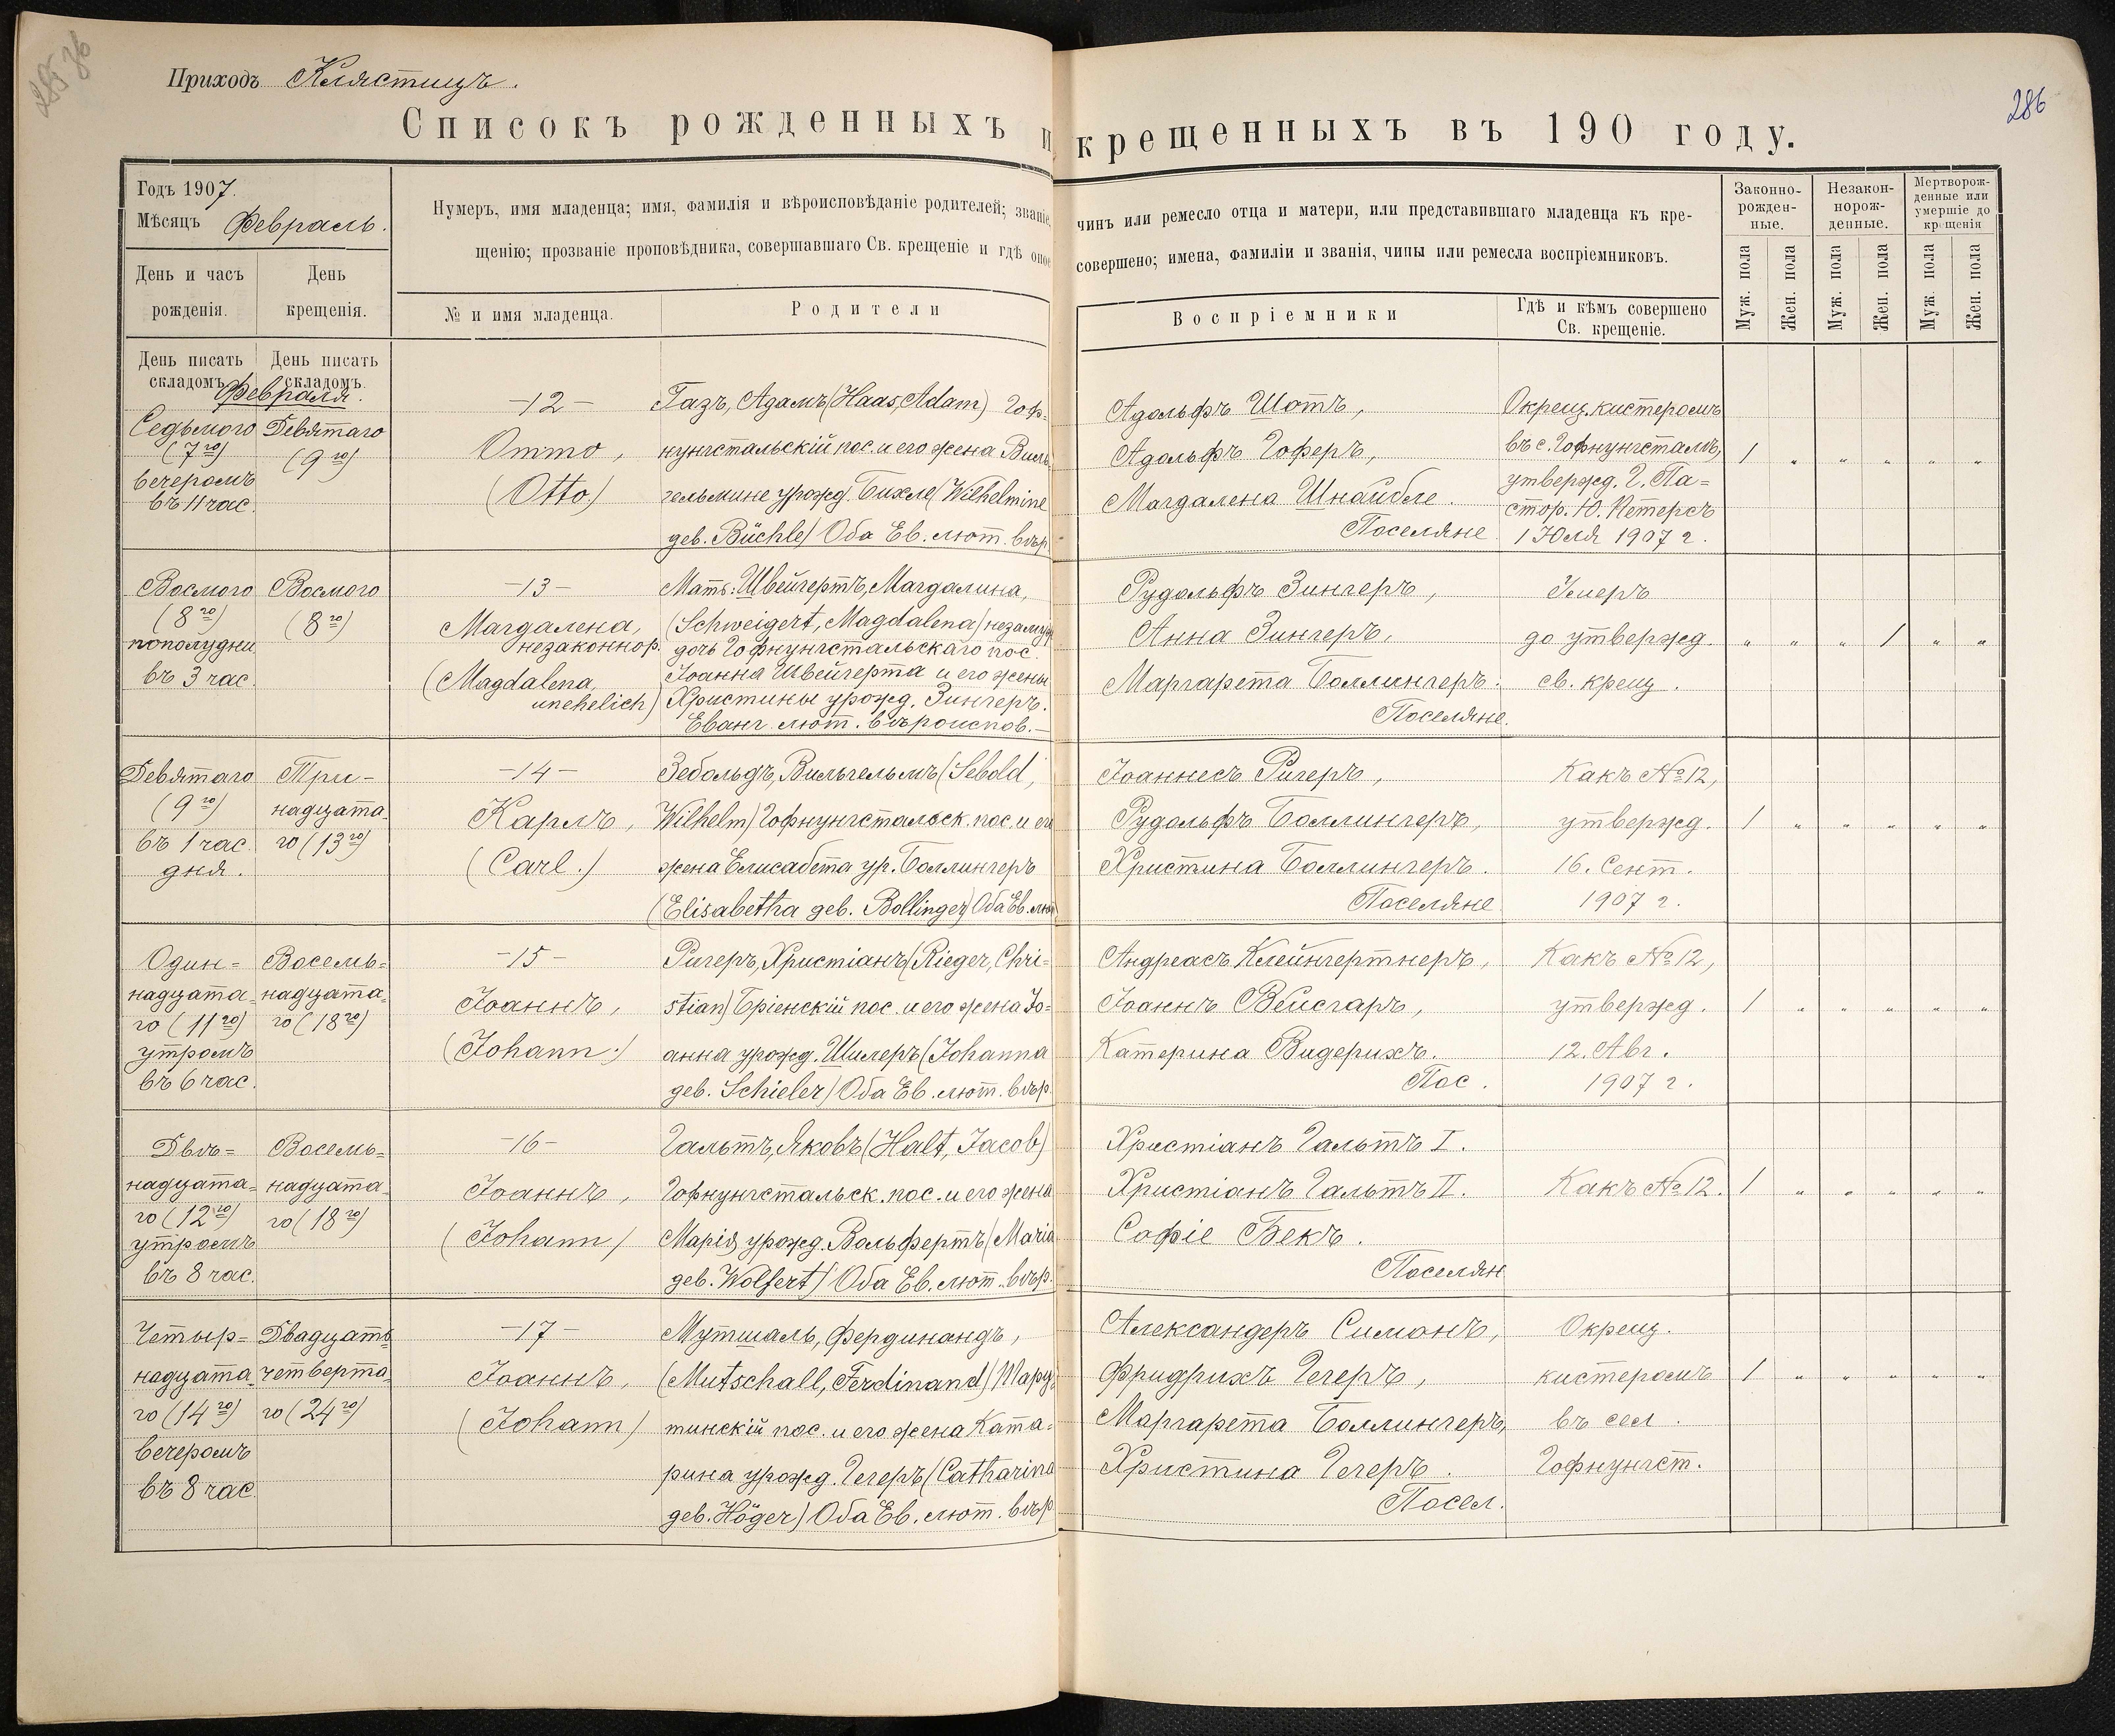 Приходъ Клястицъ.
286
Списокъ рожденныхъ и крещенныхъ въ 190 году.
Годъ 1907.
Мѣсяцъ Февраль.
День и часъ рожденія.
День крещенія.
Нумеръ, имя младенца; имя, фамилія и вѣроисповѣданіе родителей; званіе, чинъ или ремесло отца и матери, или представившаго младенца къ кре-
щенію; прозваніе проповѣдника, совершавшаго Св. крещеніе и гдѣ оное совершено; имена, фамиліи и званія, чины или ремесла воспріемниковъ.
№ и имя младенца.
Родители
Воспріемники
Гдѣ и кѣмъ совершено
Св. крещеніе.
Законно-
рожден-
ные.
Незакон-
норож-
денные.
Мертворож-
денные или
умершіе до
крещенія
Муж. пола
Жен. пола
Муж. пола
Жен. пола
Муж. пола
Жен. пола
День писать
складомъ.
День писать
складомъ.
Февраля.
Седьмого
(7го)
вечеромъ
въ 11 час.
Девятаго
(9го)
-12-
Отто,
(Otto)
Газъ, Адамъ (Haas, Adam) Гоф-
нунгстальскій пос. и его жена Виль-
гельмине урожд. Бихле (Wilhelmine
geb. Büchle) Оба Ев. лют. вѣр.
Адольфъ Шотъ,
Адольфъ Гоферъ,
Магдалена Шнайбле.
Поселяне
Окрещ. кистеромъ
въ с. Гофнунгсталъ,
утвержд. Г. Па=
стор. Ю. Петерсъ
1 Юля 1907 г.
1 " " " " "
Восмого
(8го)
пополудни
въ 3 час.
Восмого
(8го)
-13-
Магдалена,
незаконнор.
(Magdalena,
unehelich)
Мать: Швейгертъ, Магдалина,
(Schweigert, Magdalena) незамуж
дочь Гофнунгстальскаго пос.
Іоанна Швейгерта и его жены
Христины урожд. Зингеръ.
Еванг. лют. вѣроиспов.-
Рудольфъ Зингеръ,
Анна Зингеръ,
Маргарета Боллингеръ.
Поселяне.
Умеръ
до утвержд.
св. крещ.
" " " 1 " "
Девятаго
(9го)
въ 1 час.
дня.
Три-
надцата-
го (13го)
-14-
Карлъ,
(Carl.)
Зебольдъ, Вильгельмъ (Sebold,
Wilhelm) Гофнунгстальск. пос. и его
жена Елисабета ур. Боллингеръ
(Elisabetha geb. Bollinger) Оба Ев. лют
Іоаннесъ Ригеръ,
Рудольфъ Боллингеръ,
Христина Боллингеръ.
Поселяне
Какъ №12,
утвержд.
16. Сент.
1907 г.
1 " " " " "
Один=
надцата-
го (11го)
утромъ
въ 6 час.
Восемь=
надцата-
го (18го)
-15-
Іоаннъ,
(Johann.)
Ригеръ, Христіанъ (Rieger, Chri=
stian) Бріенскій пос. и его жена Іо=
анна урожд. Шилеръ (Johanna
geb. Schieler) Оба Ев. лют. вѣр.
Андреасъ Клейнгертнеръ,
Іоаннъ Вейсгаръ,
Катерина Видерихъ.
Пос.
Какъ №12,
утвержд.
12. Авг.
1907 г.
1 " " " " "
Двѣ=
надцата=
го (12го)
утромъ
въ 8 час.
Восемь=
надцата-
го (18го)
-16-
Іоаннъ,
(Johann)
Гальтъ, Яковъ (Halt, Jacob)
Гофнунгстальск. пос. и его жена
Марія, урожд. Вольфертъ (Maria
geb. Wolfert) Оба Ев. лют. вѣр.
Христіанъ Гальтъ I.
Христіанъ Гальтъ II.
Софіе Бекъ.
Поселян
Какъ №12.
1 " " " " "
Четыр=
надцата-
го (14го)
вечеромъ
въ 8 час.
Двадцать
четверта-
го (24го)
-17-
Іоаннъ,
(Johann)
Мутшаль, Фердинандъ,
(Mutschall, Ferdinand) Тару-
тинскій пос. и его жена Ката=
рина урожд. Гегеръ (Catharina
geb. Höger) Оба Ев. лют. вѣр
Александеръ Симонъ,
Фридрихъ Гегеръ,
Маргарета Боллингеръ,
Христина Гегеръ.
Посел.
Окрещ.
кистеромъ
въ сел.
Гофнунгст.
1 " " " " "